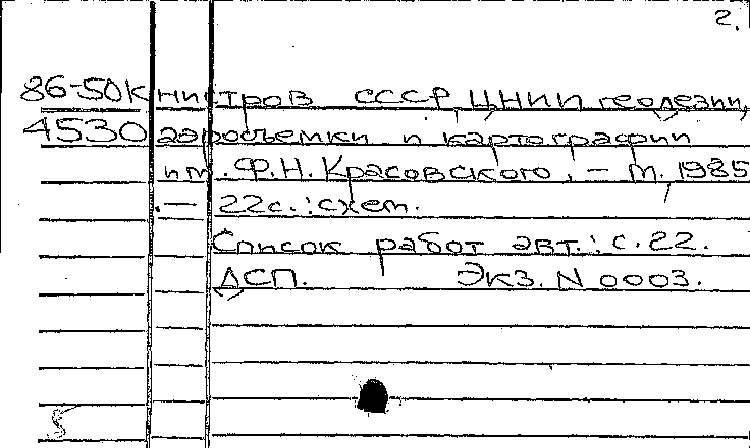 2.
86-50к нистров СССР, ЦНИИ геодезии,
4530 аэросъемки и картографии
им. Ф.Н. Красовского. – М. 1985
. – 22с.: схем.
Список работ авт.: с. 22.
ДСП. Экз. N 0003.